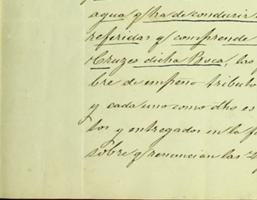 agua y ha de conducir
referidas y comprende
Cruzes dicha Boca, los
bre de empeño tributo
y cada uno como dho es
tos y entregados en la f
sobre q renuncian las